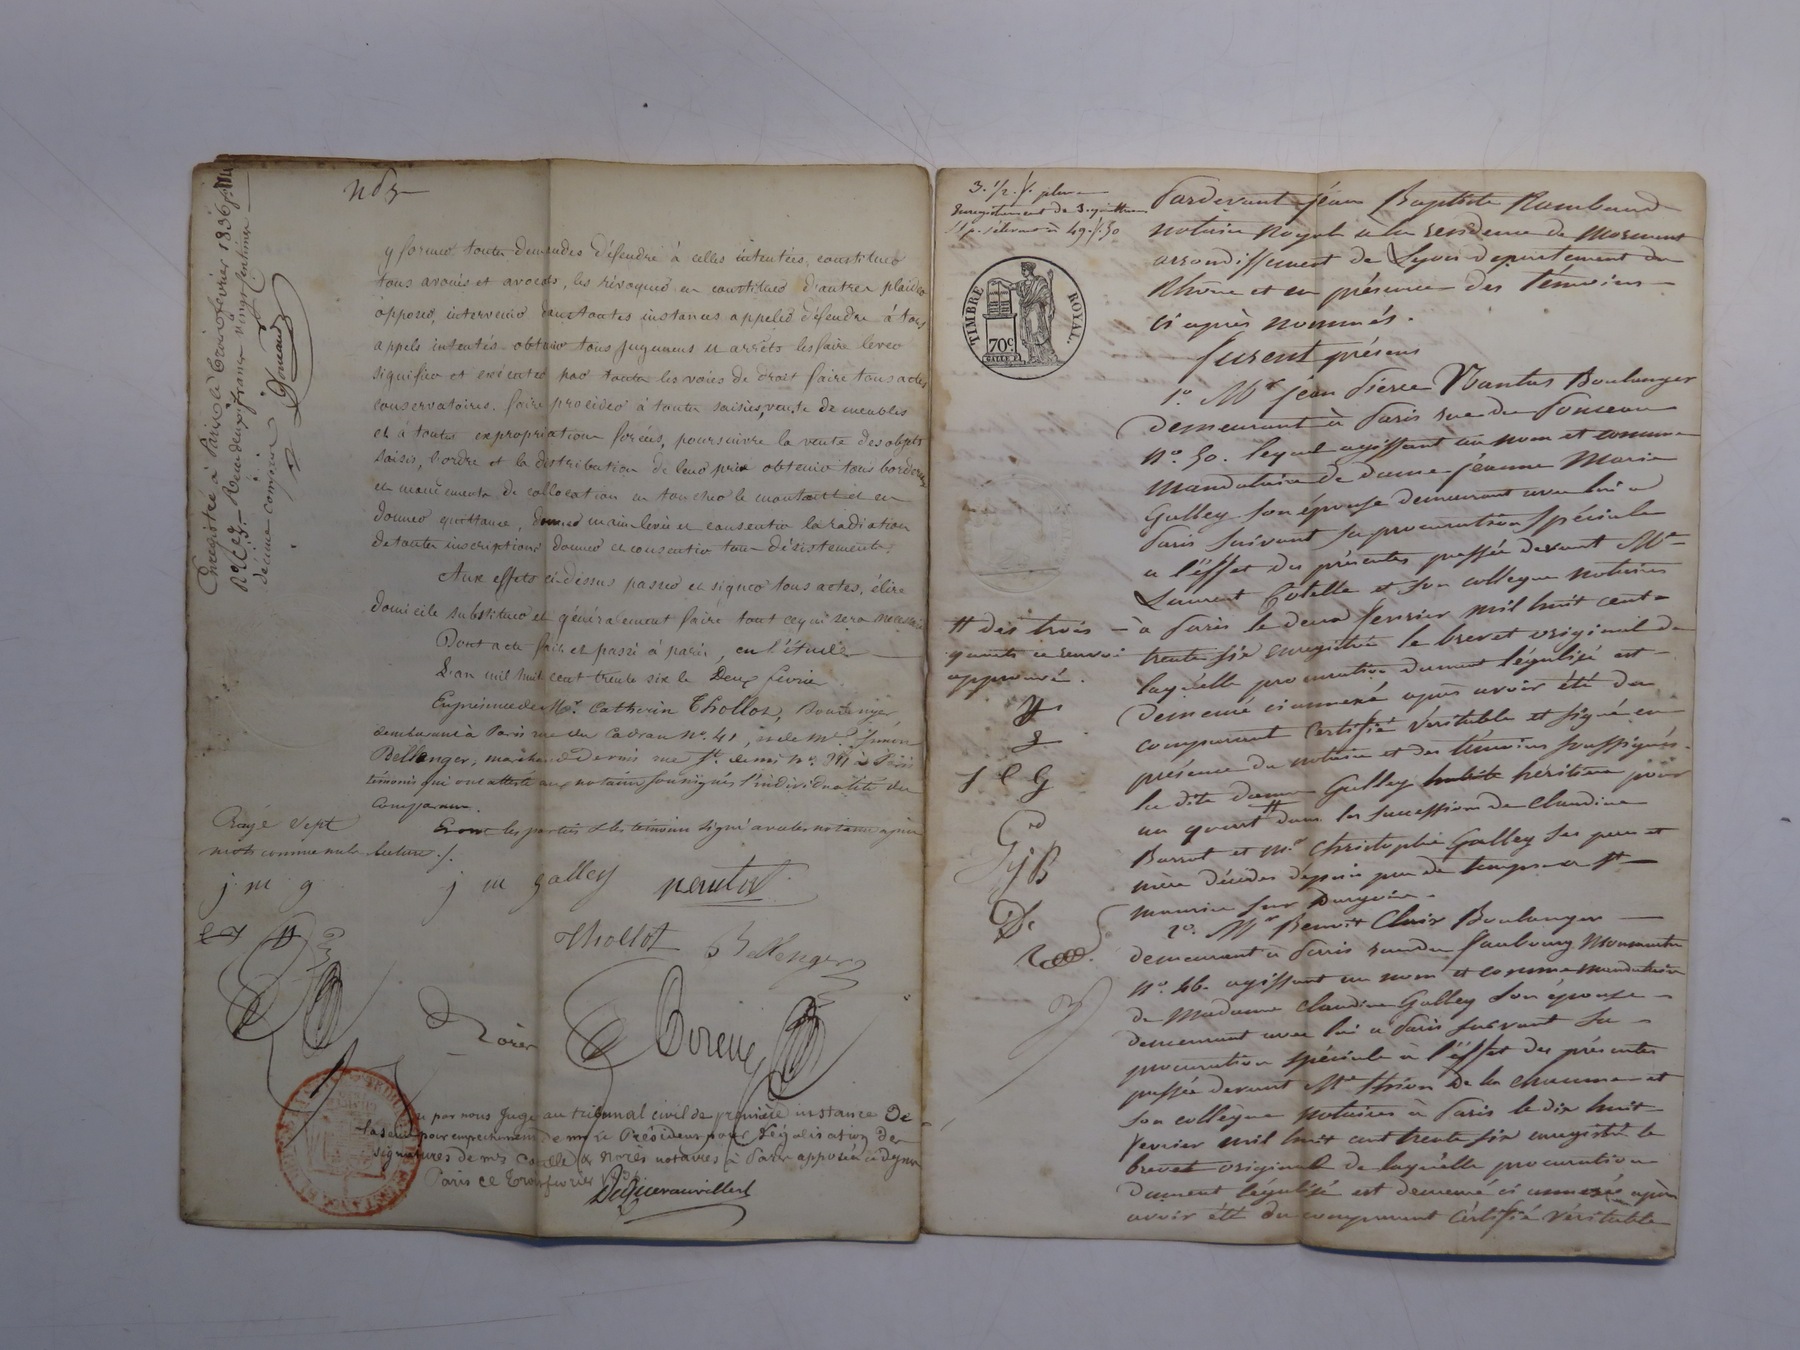 Enregistré à Paris le trois février 1836
Reçu deux francs vingt centimes
décime compris
y former toutes demandes défendre à celles intentées, constituer
tous avoués et avocats, les révoquer en constituer d'autres plaider
opposer, intervenir dans toutes instances appeler défendre à tous
appels intentés obtenir tous jugemens et arrêts les faire lever
signifier et exécuter par toutes les voies de droit faire tous actes
conservatoires. faire procéder à toutes saisies, vente de meubles
et à toutes expropriations forcées, poursuivre la vente des objets
saisis, l'ordre et la distribution de leur prix obtenir tous bordereaux
et mandements de collocation en toucher le montant et en
donner quittance, donner main levée et consentir la radiation
de toutes inscriptions donner et consentir tous désistements
Aux effets ci dessus passer et signer tous actes, élire
domicile substituer et généralement faire tout ce qui sera nécessaire
Dont acte fait et passé à paris, en l'étude
L'an mil huit cent trente six le Deux février
En présence de Mr. Catherin Thollot, Boulanger
demeurant à Paris rue du Cadran No. 41, et de Mr Simon
Bellenger, marchand de vins rue St. denis no. à Paris
témoins qui ont attesté aux notaires soussignés l'individualité du
comparant.
Et ont les parties et les témoins signé avec les notaires après
lecture ./.
Rayé sept
mots comme nuls
j m g
j m galley nantus
Thollot S Bellenger
Noirée
Vu par nous Juge au tribunal civil de première instance De
la Seine pour empêchement de mr Le Président pour légalisation des
signatures de mes Cotelle & Noirés notaires à Paris apposées
Paris ce trois février 1836
3. 1/2. f. plus
Enregistrement de 3.
49.f.50
TIMBRE ROYAL.
70c.
Pardevant Jean Baptiste Rambaud
notaire Royal a la residence de Mornant
arrondissement de Lyon departement du
Rhône et en présence des témoins
ci après nommés.
furent présens
1o. Mr. Jean Pierre Nantus Boulanger
demeurant à Paris rue du Ponceau
no. 50. lequel agissant au nom et comme
mandataire de dame Jeanne Marie
Galley son épouse demeurant avec lui a
Paris suivant sa procuration spéciale
a l'effet des présentes passée devant Me
Laurent Cotelle et son collegue notaires
à Paris le deux fevrier mil huit cent
trente six enregistrée le brevet original de
laquelle procuration dument légalisé est
demeuré ci annexé après avoir été du
comparant certifié véritable et signé en
présence du notaire et des témoins soussignés.
la dite dame Galley héritière pour
un quart # dans les successions de Claudine
Barrot et Mr Christophe Galley ses pere et
mère décédés depuis peu de temps a St
maurice sur Dargoire.
# des trois
quarts ce renvoi
approuvé.
J C G
G j B
2o. Mr Benoit Clair Boulanger
demeurant a Paris rue du faubourg Montmartre
no. 46. agissant au nom et comme mandataire
de Madame Claudine Galley son épouse
demeurant avec lui a Paris suivant sa
procuration spéciale à l'effet des présentes
passée devant Me Thion de la Chaume et
son collègue notaires à Paris le dix huit
fevrier mil huit cent trente six enregistré le
brevet original de laquelle procuration
dument légalisé est demeuré ci annexé après
avoir été du comparant certifié véritable